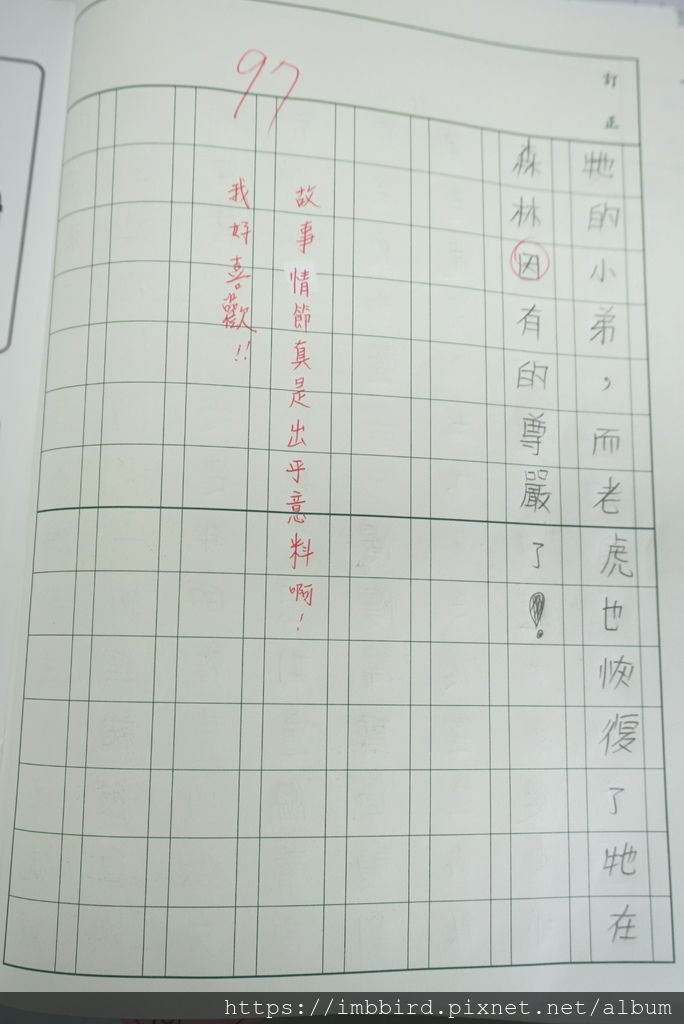 訂正
牠的小弟，而老虎也恢復了牠在
森林因有的尊嚴了！
97
故事情節真是出乎意料啊！
我好喜歡!!
https://imbbird.pixnet.net/album